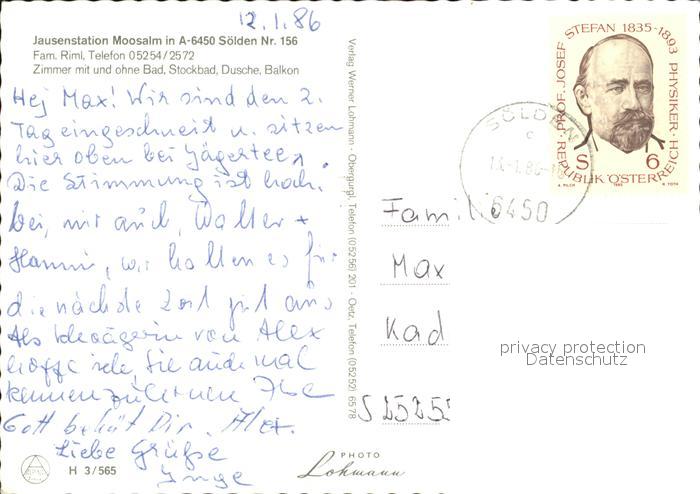 12.1.86
Jausenstation Moosalm in A-6450 Sölden Nr. 156
Fam. Riml, Telefon 05254/2572
Zimmer mit und ohne Bad, Stockbad, Dusche, Balkon
Hej Max! Wir sind den 2.
Tag eingeschneit u. sitzen
hier oben bei Jägertee.
Die Stimmung ist hoch.
bei, mir auch, Walter +
Hanni, wir halten es für
die nächste Zeit gut aus
Als von Alex
hoffe ich, Sie auch mal
kennenzulernen
Gott behüt Dir, Alex.
Liebe Grüße
Inge
H 3/565
PHOTO
Lohmann
Verlag Werner Lohmann · Obergurgl, Telefon (05256) 201 · Oetz, Telefon (05252) 6578
PROF. JOSEF STEFAN 1835-1893 PHYSIKER
S 6
REPUBLIK ÖSTERREICH
A. PILCH 1985 K. TOTH
SÖLDEN
c
6450
Famil
Max
Kad
privacy protection
Datenschutz